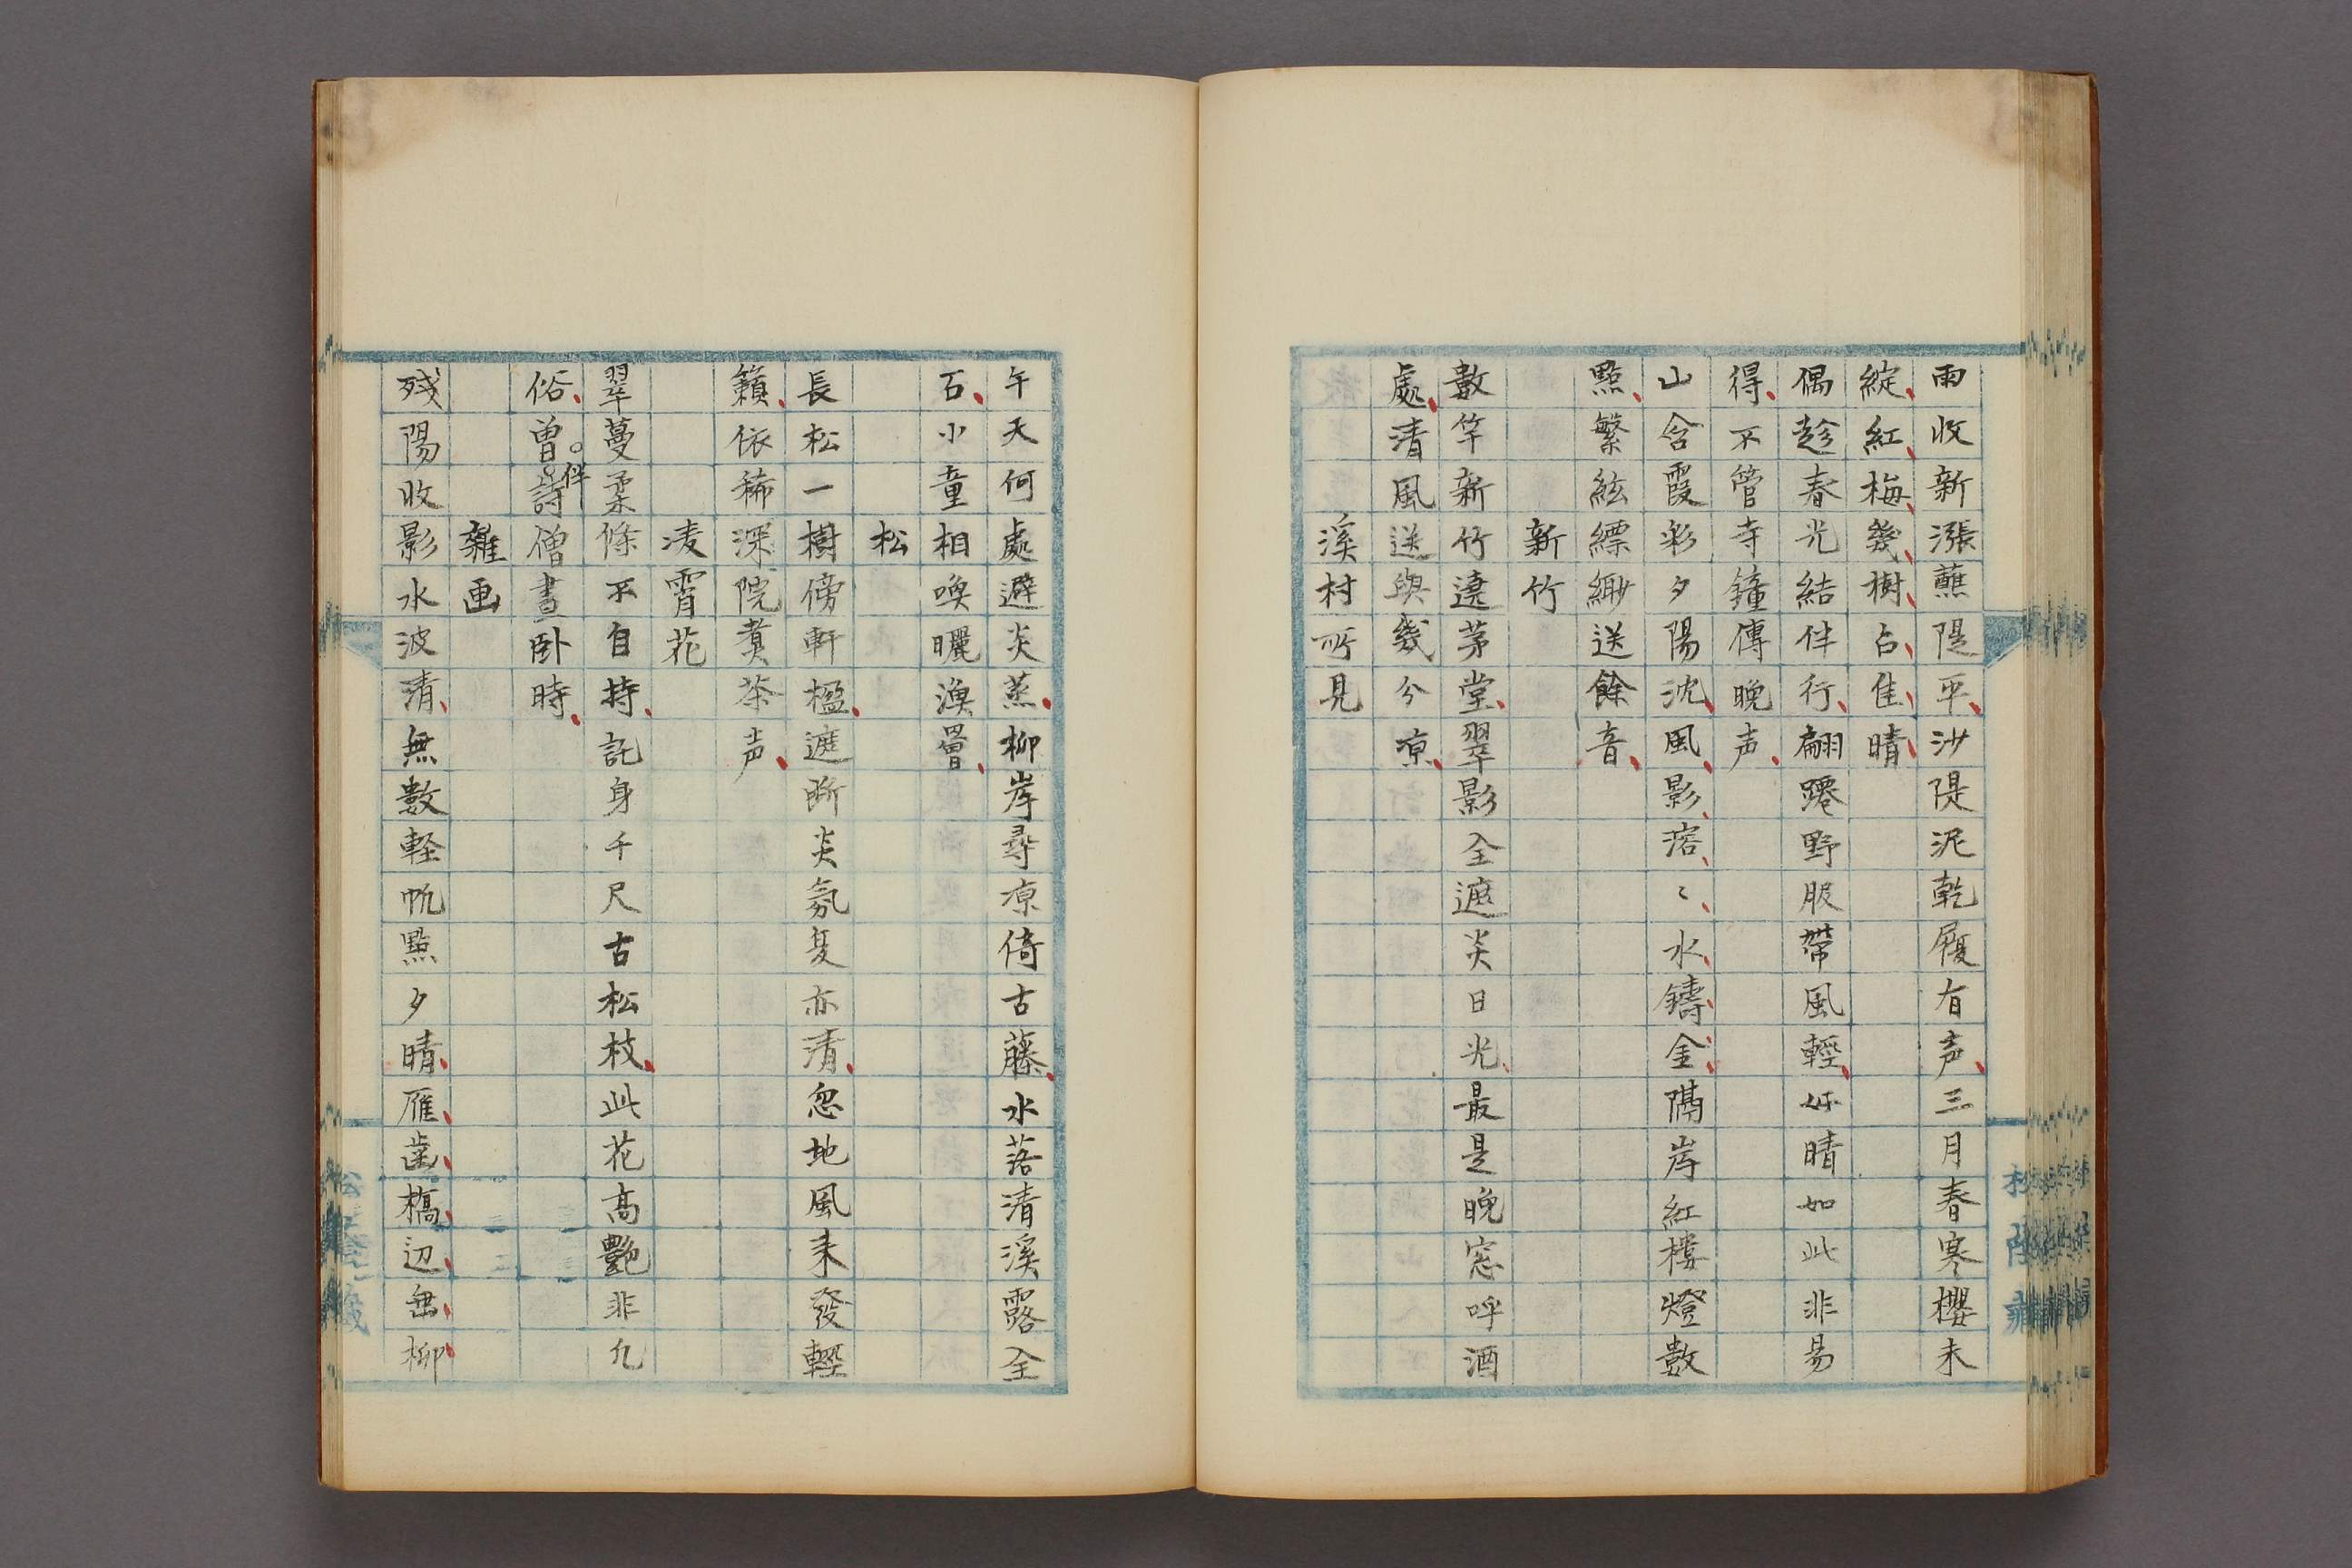 雨收新漲蘸隄平沙隄泥乾履有声三月春寒櫻未
綻紅梅幾樹占隹晴
偶趁春光結伴行翩躚野服帶風輕好晴如此非易
得不管寺鐘傳晩声
山含霞彩夕陽沈風影溶〻水鑄金隔岸紅樓燈數
點繁絃縹緲送餘音
新竹
數竿新竹遶茅堂翠影全遮炎日光最是晩窓呼酒
處清風送與幾分凉
溪村所見
午天何處避炎蒸柳岸尋凉倚古藤水落清溪露全
石小童相喚曬漁罾
松
長松一樹傍軒楹遮断炎氛夏亦清忽地風来發輕
籟依稀深院煑茶声
凌霄花
翠蔓柔條不自持託身千尺古松枝此花高艶非凡
俗曽伴詩僧晝卧時
雜画
殘陽收影水波清無數軽帆點夕晴雁歯橋辺無柳